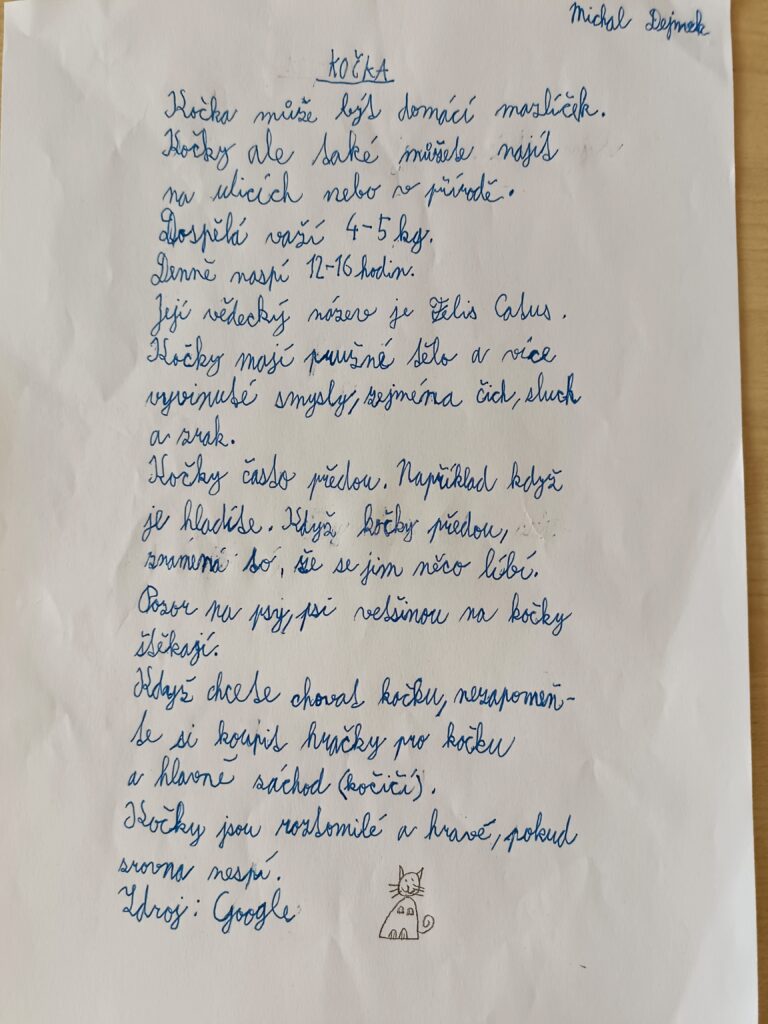 Michal Dejmek
KOČKA
Kočka může být domácí mazlíček.
Kočky ale také můžete najít
na ulicích nebo v přírodě.
Dospělá važí 4-5 kg.
Denně naspí 12-16 hodin.
Její vědecký název je Felis Catus.
Kočky mají pružné tělo a více
vyvinuté smysly, zejména čich, sluch
a zrak.
Kočky často předou. Například když
je hladíte. Když kočky předou,
znamená to, že se jim něco líbí.
Pozor na psy, psi vetšinou na kočky
štěkají.
Když chcete chovat kočku, nezapomeň-
te si koupit hračky pro kočku
a hlavně záchod (kočičí).
Kočky jsou roztomilé a hravé, pokud
srovna nespí.
Zdroj: Google